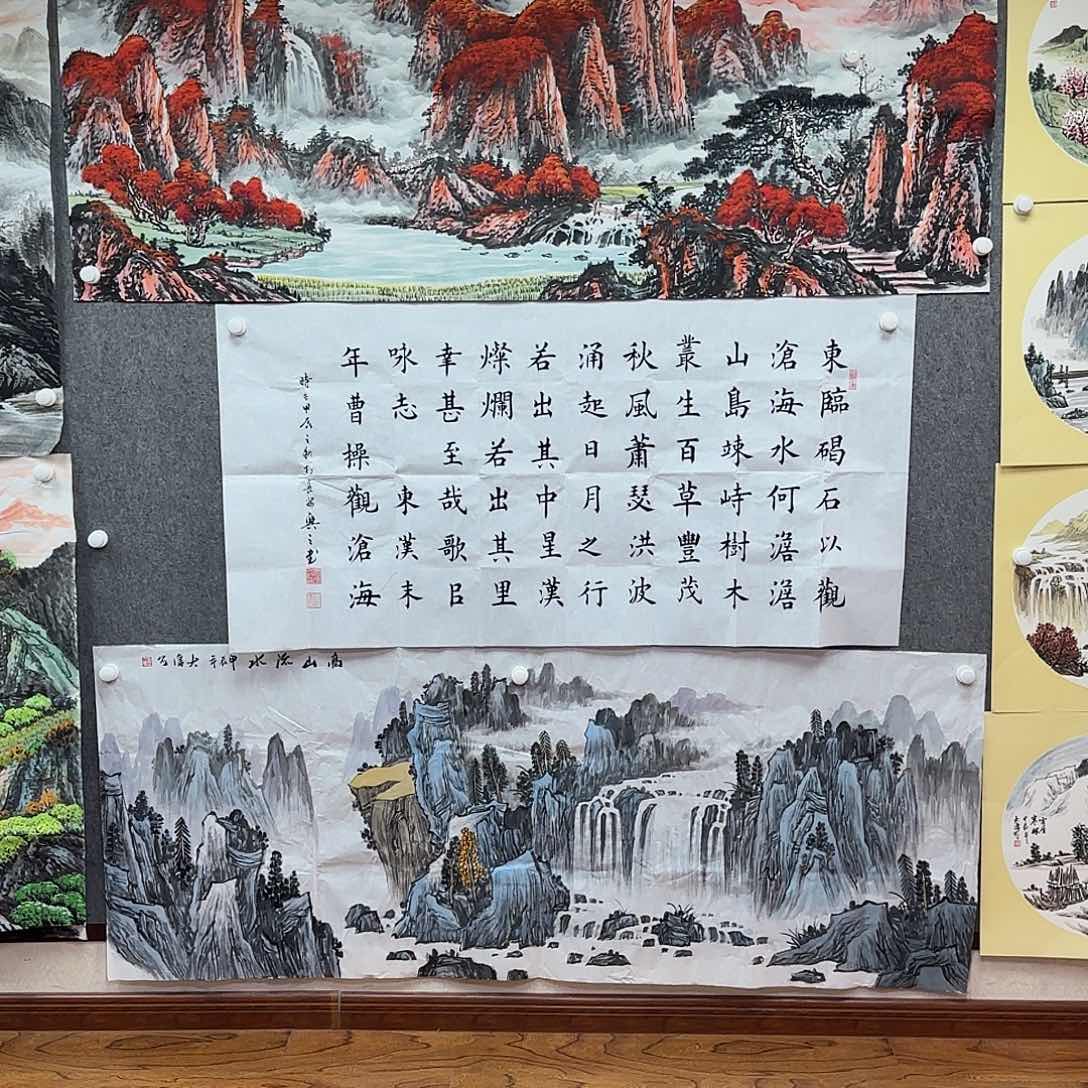 東臨碣石以觀
滄海水何澹澹
山島竦峙樹木
叢生百草豐茂
秋風蕭瑟洪波
涌起日月之行
若出其中星漢
燦爛若出其里
幸甚至哉歌㠯
咏志 東漢末
年曹操觀滄海
甲辰之秋
高山流水 甲辰年